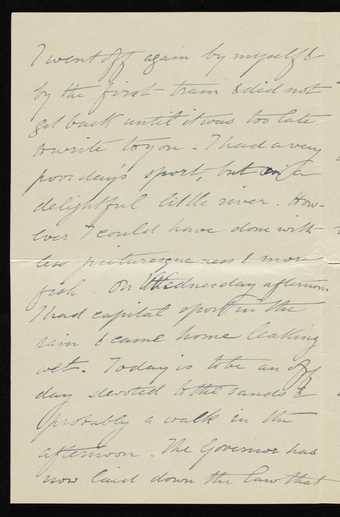 I went off again by myself &
by the first train & did not
get back until it was too late
to write to you - I had a very
poor day's sport, but in a
delightful little river. How-
ever I could have done with
less picturesqueness & more
fish. On Wednesday afternoon
I had capital sport in the
rain & came home soaking
wet. Today is to be an off
day devoted to the sands &
probably a walk in the
afternoon. The Governor has
now laid down the law that